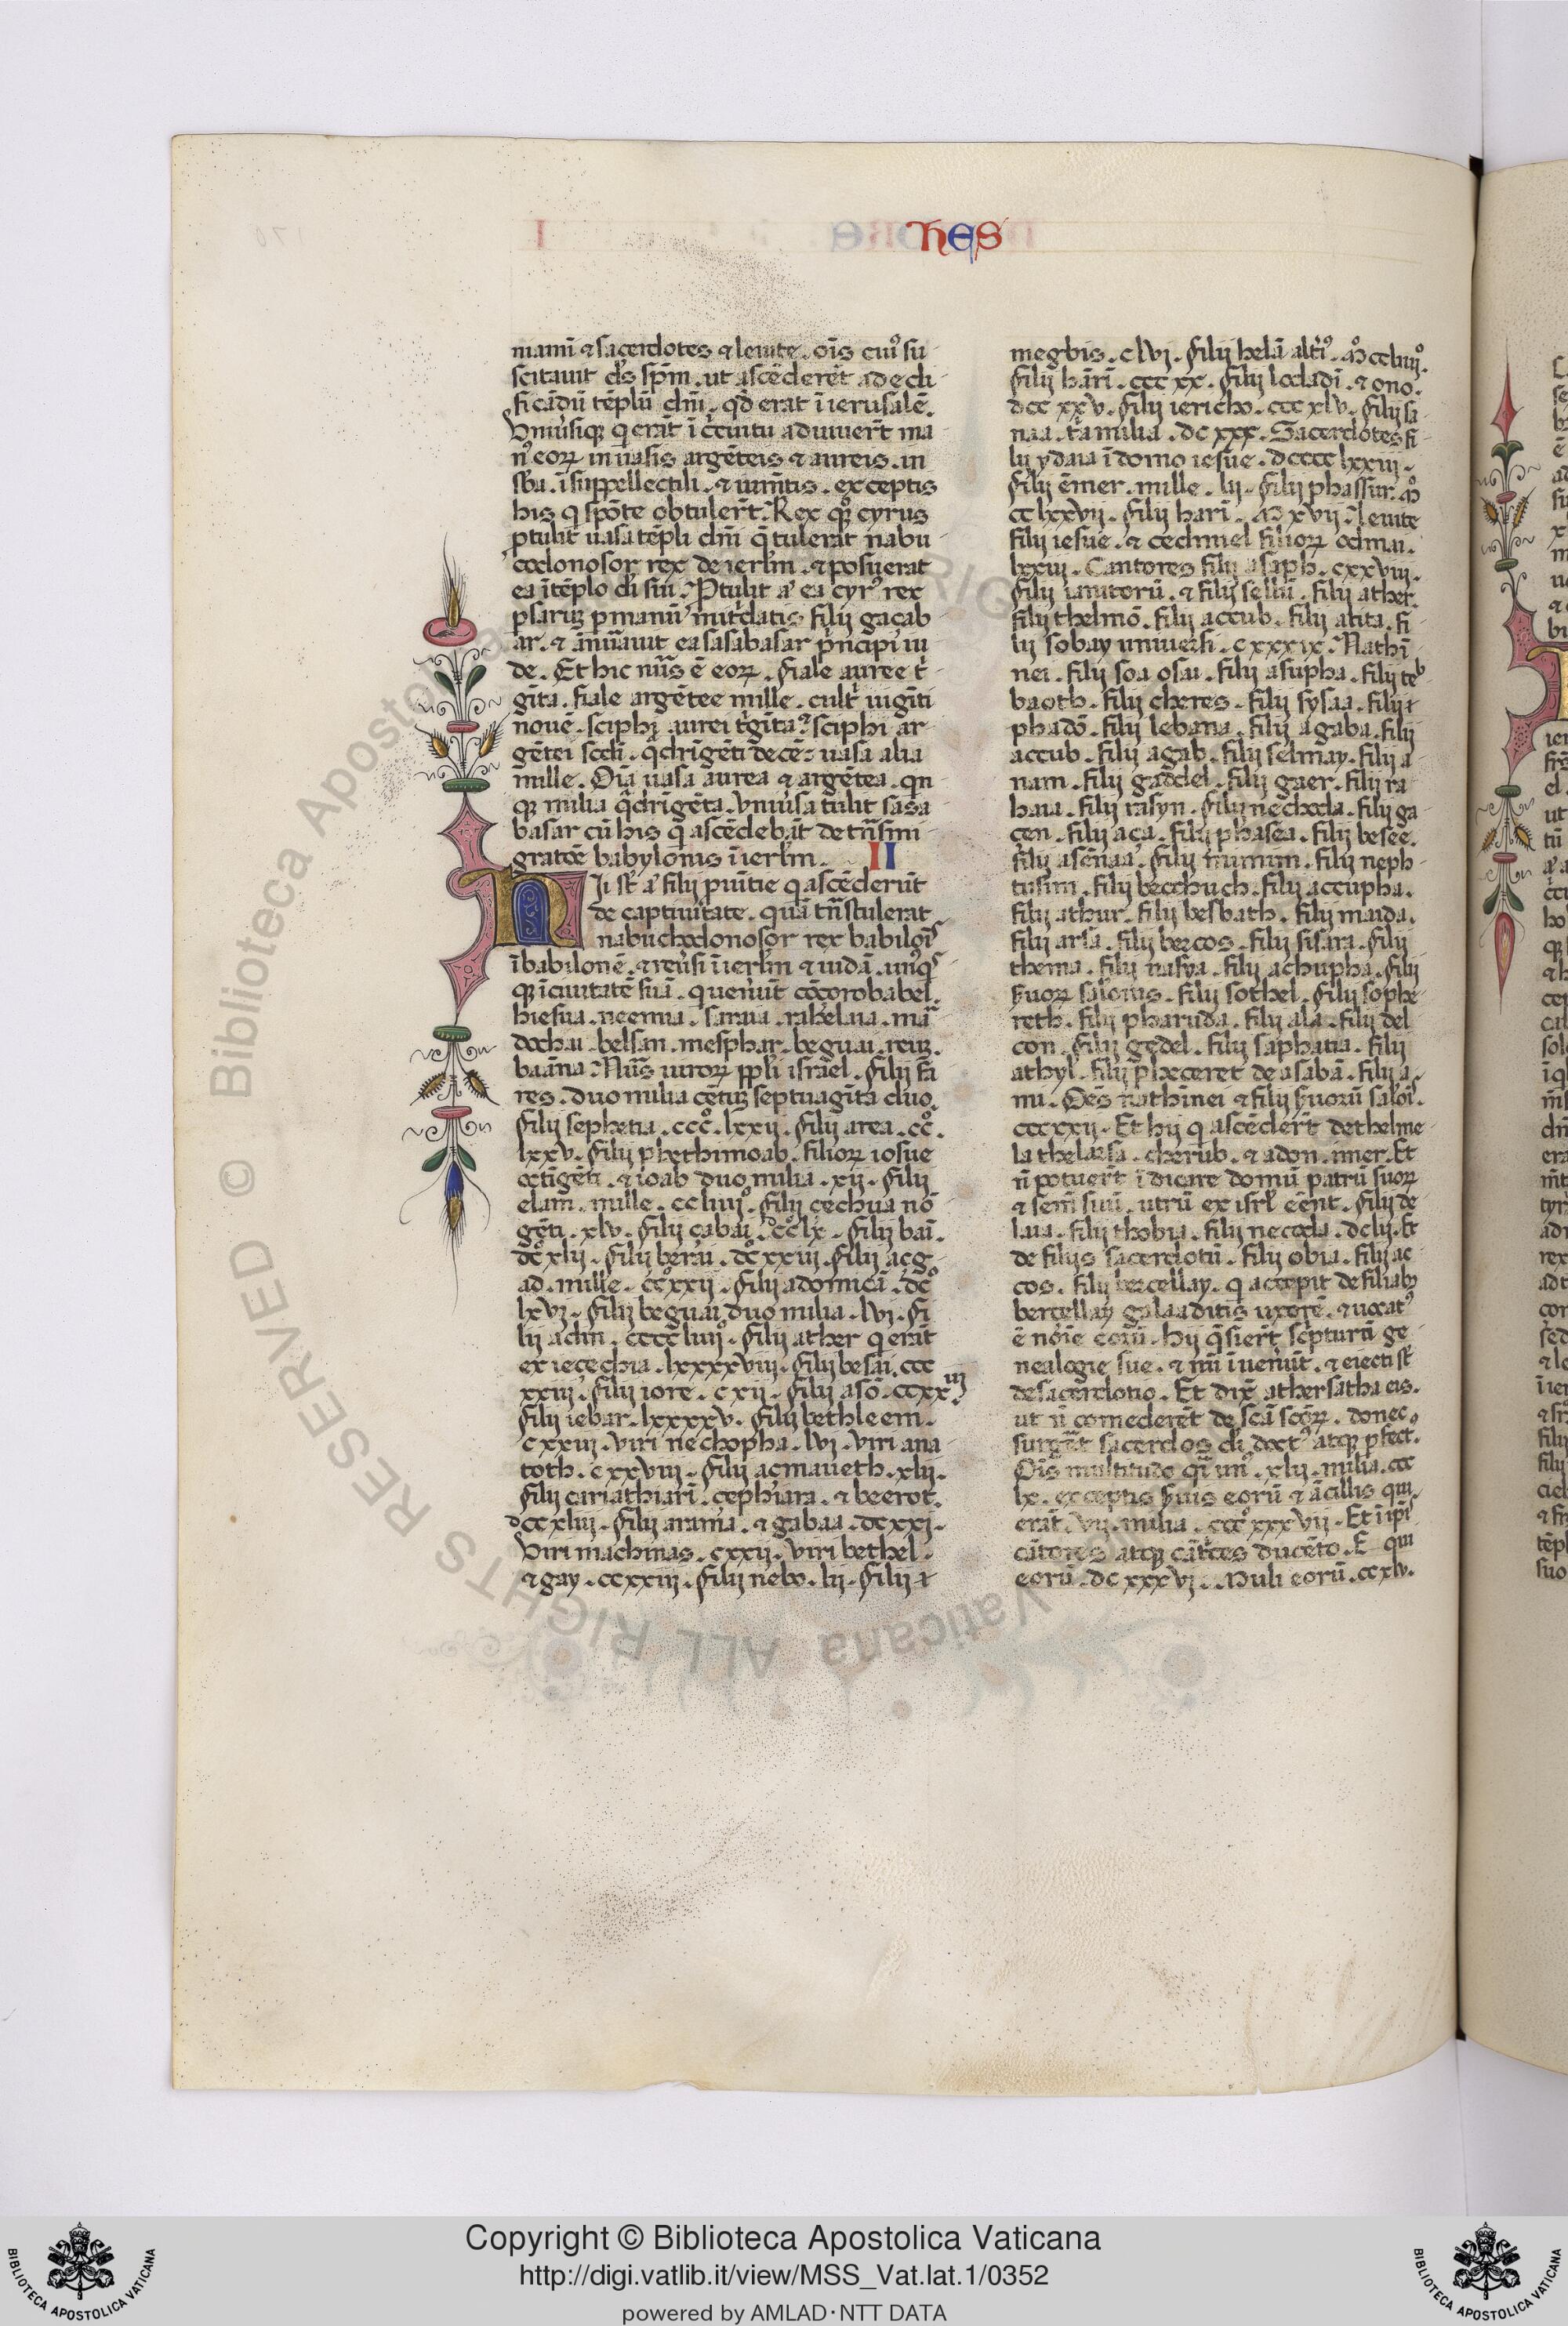 HES
mami ⁊ sacerdotes ⁊ leuite. oīs cuiꝰ su
scitauit ds̄ sp̄m. ut ascēderēt ad edi
ficādū tēplū dn̄i. qd̄ erat ī ierusalē.
Vniūsiqꝫ q erāt ī c̄cuitu adiuuert̄ ma
nꝰ eoꝝ in uasis argēteis ⁊ aureis. in
sb̄a. ī suppellectili. ⁊ iumētis. exceptis
his q spōte obtulert̄. Rex qꝫ cyrus
ptulit uasa tēpli dn̄i q̄ tulerat nabu
codonosor rex de ierl̄m. ⁊ posuerat
ea ī tēplo di sui. Ptulit aͤ ea cyrꝰ rex
psarꝫ p manū mitr̄datis filij gaçab
ar. ⁊ ānūauit ea sasabasar prīcipi iu
de. Et hic nūs ē eoꝝ. fiale auree tͥ
gīta. fiale argētee mille. cultͥ uigīti
nouē. sciphi aurei tͥgīta. sciphi ar
gētei scd̄i. qdrīgēti decē. uasa alia
mille. Oīa uasa aurea ⁊ argētea. qn
qꝫ milia q̄drīgēta. Vniūsa tulit sasa
basar cū his q ascēdebāt de trāsmi
gratōe babylonis ī ierl̄m. II
Hii st̄ aͤ filij puītie q ascēderūt
de captiuitate. quā trāstulerat
nabuchodonosor rex babilōis
ī babilonē. ⁊ reūsi ī ierl̄m ⁊ iudā. unꝰqs
qꝫ ī ciuitatē suā. q uenūt cō çorobabel.
hiesua. neemia. saraia. rahelaia. mar
dochai. belsan. mesphar. beguai. reuꝫ.
baāna. Nūs uiroꝝ ppl̄i israel. filij fa
res. duo milia cētuꝫ septuagīta duo.
filij sephetia. cccͦ. lxxij. filij area. ccͦ.
lxxv. filij phethimoab. filioꝝ iosue
octīgēti. ⁊ ioab duo milia. xij. filij
elam. mille. ccliiijͦ. filij çechua nō
gēti. xlv. filij çabai. dccͦ lx. filij bai.
dcͦ xlij. filij bebai. dcͦ xxiij. filij açg
ad. mille. ccͦxxij. filij adonicā. dcͦ
lxvj. filij beguai duo milia. lvj. fi
lij adin. cccc liiijͦ. filij ather q erāt
ex ieçechia. lxxxxviij. filij besai. ccc
xxiij. filij iore. cxij. filij asō. ccxx iij.
filij iebar. lxxxxv. filij bethleem.
cxxiij. viri nechopha. lvj. viri ana
toth. cxxviij. filij açmaueth. xlij.
filij cariathiari. cephiara. ⁊ beerot.
dccxliij. filij arama. ⁊ gabaa. dcxxj.
Viri machinas. cxxij. viri bethel.
⁊ gay. ccxxiij. filij nebo. lij. filij ⁊
megbis. clvj. filij helā altīꝰ. mͦ ccliiijͦ.
filij hāri. cccxx. filij lodadi. ⁊ ono.
dccxxv. filij iericho. cccxlv. filij sa
naa. tͥa milia. dcxxx. Sacerdotes fi
lij ydaia ī domo iesue. dcccclxxiij.
filij ēmer. mille. lij. filij phassur. mͦ
cclxxvij. filij hari. mͦ xvij. leuite
filij iesue. ⁊ cedmiel filioꝝ odmai.
lxxiij. Cantores filij asaph. cxxviij.
filij ianitorū. ⁊ filij sellū. filij ather.
filij thelmō. filij accub. filij atita. fi
lij sobay uniuersi. cxxxix. Nathī
nei. filij soa osai. filij asupha. filij teb
baoth. filij cheres. filij sysaa. filij ⁊
phadō. filij lebana. filij agaba. filij
accub. filij agab. filij selmay. filij a
nam. filij gaddel. filij gaer. filij ra
haia. filij rasyn. filij nechoda. filij ga
çen. filij aça. filij phasea. filij besee.
filij asēnaa. filij munim. filij neph
tusim. filij becchuch. filij accupha.
filij athur. filij besbath. filij maida.
filij arsa. filij bercos. filij sisara. filij
thema. filij nasya. filij achupha. filij
suoꝝ salōnis. filij sothel. filij sophe
reth. filij pharuda. filij ala. filij del
con. filij gedel. filij saphatia. filij
athyl. filij pheceret de asabā. filij a
mi. Oēs nathinei ⁊ filij suorū salōi.
cccxxij. Et hij q ascēdert̄ de thelme
la thelarsa. cherub. ⁊ adon. imer. Et
n̄ potuert̄ īdicare domū patrū suoꝝ
⁊ sem̄ suū. utrū ex isrl̄ eēnt. filij de
laia. filij thobia. filij necoda. dclij. Et
de filijs sacerdotū. filij obia. filij ac
cos. filij bercellay. q accepit de filiabꝫ
bercellay galaaditis uxorē. ⁊ uocatꝰ
ē noīe eorū. hij q̄siert̄ sc̄pturā ge
nealogie sue. ⁊ nō īuenūt. ⁊ eiecti st̄
de sacerdotio. Et dix̄ athersatha eis.
ut n̄ comederēt de sc̄ā sc̄oꝝ. donec
surgēt sacerdos di doctꝰ atqꝫ pfect.
Oīs multitudo q̄i unꝰ. xlij. milia. ccc
lx. exceptis suis eorū ⁊ ācillis qui
erāt. vij. milia. cccxxxvij. Et ī ipī
cātores atqꝫ cātͥces duceto. E qui
eorū. dcxxxvj. Muli eorū. ccxlv.
© Biblioteca Apostolica Vaticana ALL RIGHTS RESERVED
Copyright © Biblioteca Apostolica Vaticana
http://digi.vatlib.it/view/MSS_Vat.lat.1/0352
powered by AMLAD·NTT DATA
BIBLIOTECA APOSTOLICA VATICANA
BIBLIOTECA APOSTOLICA VATICANA